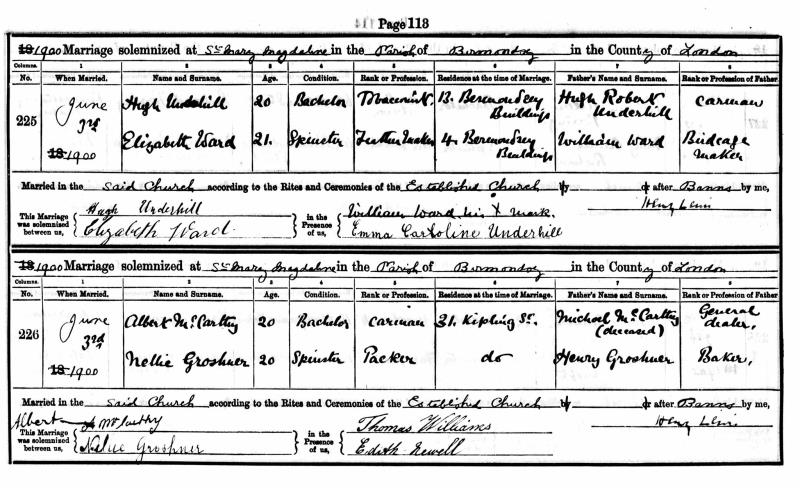 Page 113
18 1900 Marriage solemnized at St Mary Magdalene in the Parish of Bermondsey in the County of London
Columns. 1 2 3 4 5 6 7 8
No. When Married. Name and Surname. Age. Condition. Rank or Profession. Residence at the time of Marriage. Father's Name and Surname. Rank or Profession of Father.
225 June 3rd 18 1900 Hugh Underhill 20 Bachelor Tobacconist. B. Bermondsey Buildings Hugh Robert Underhill Carman
Elizabeth Ward 21. Spinster Feather Maker 4. Bermondsey Buildings William Ward Birdcage Maker
Married in the Said Church according to the Rites and Ceremonies of the Established Church by or after Banns by me,
This Marriage was solemnized between us, Hugh Underhill Elizabeth Ward in the Presence of us, William Ward his X mark. Emma Caroline Underhill Henry Lewis
18 1900 Marriage solemnized at St Mary Magdalene in the Parish of Bermondsey in the County of London
Columns. 1 2 3 4 5 6 7 8
No. When Married. Name and Surname. Age. Condition. Rank or Profession. Residence at the time of Marriage. Father's Name and Surname. Rank or Profession of Father
226 June 3rd 18 1900 Albert McCarthy 20 Bachelor Carman 31. Kipling St. Michael McCarthy (deceased) General dealer,
Nellie Groshner 20 Spinster Packer do Henry Groshner Baker,
Married in the Said Church according to the Rites and Ceremonies of the Established Church by or after Banns by me,
This Marriage was solemnized between us, Albert McCarthy Nellie Groshner in the Presence of us, Thomas Williams Edith Newell Henry Lewis